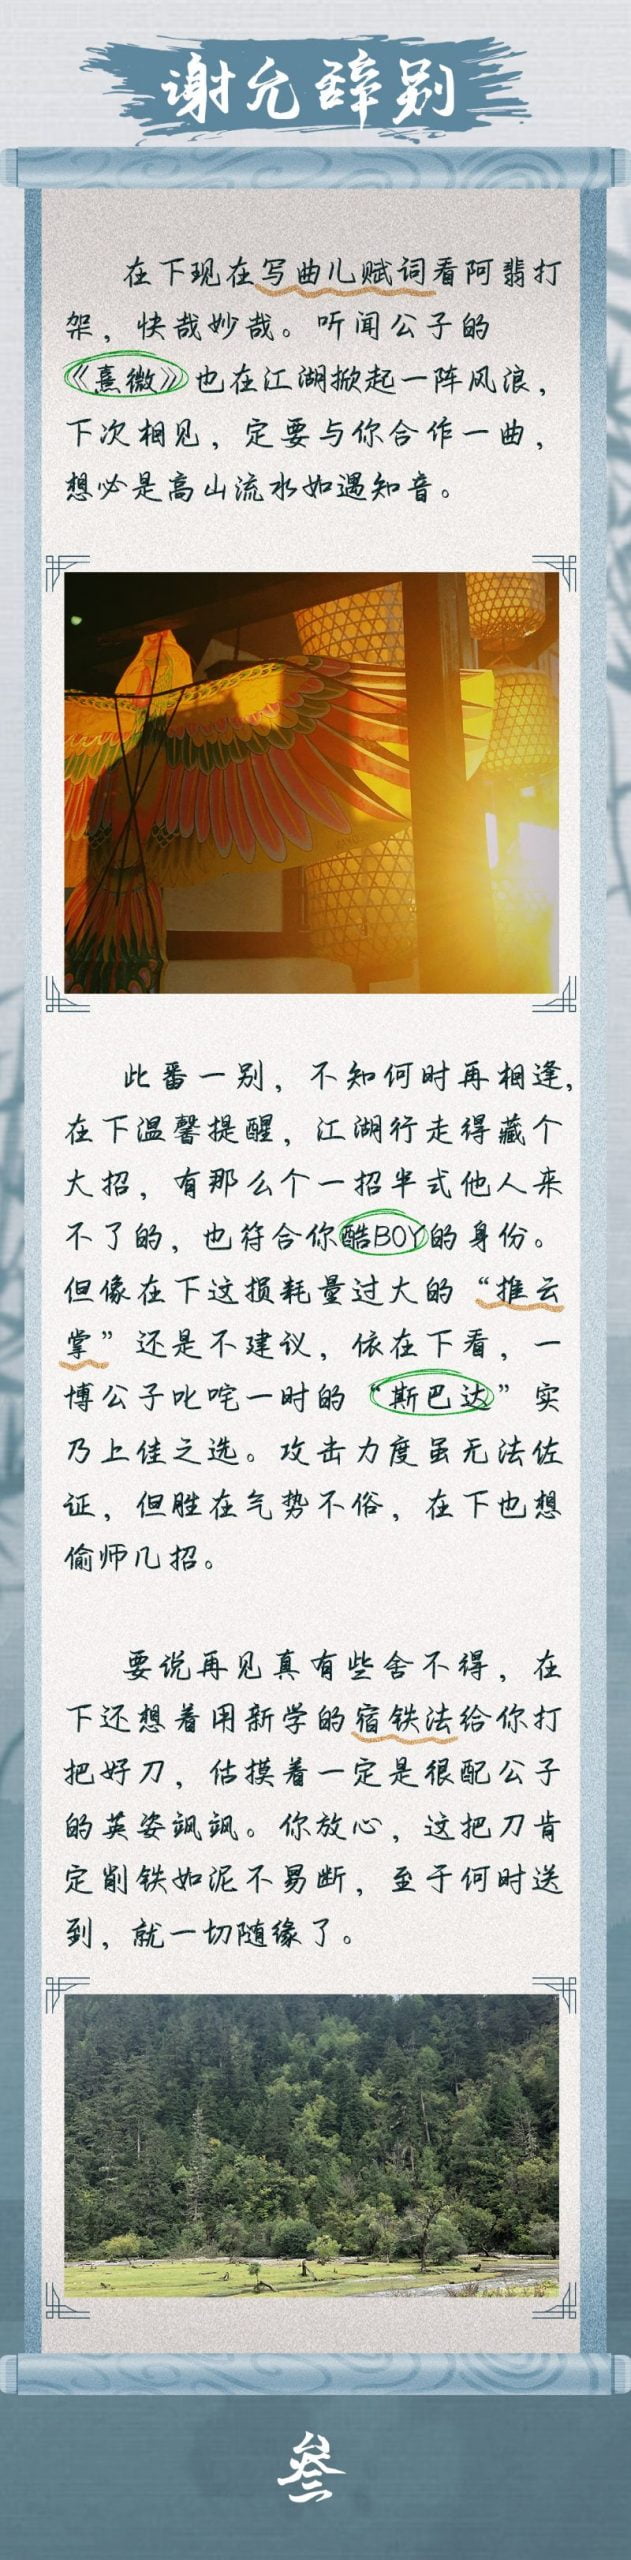 谢允辞别
在下现在写曲儿赋词看阿翡打
架，快哉妙哉。听闻公子的
《熹微》也在江湖掀起一阵风浪，
下次相见，定要与你合作一曲，
想必是高山流水如遇知音。
此番一别，不知何时再相逢，
在下温馨提醒，江湖行走得藏个
大招，有那么个一招半式他人来
不了的，也符合你酷BOY的身份。
但像在下这损耗量过大的“推云
掌”还是不建议，依在下看，一
博公子叱咤一时的“斯巴达”实
乃上佳之选。攻击力度虽无法佐
证，但胜在气势不俗，在下也想
偷师几招。
要说再见真有些舍不得，在
下还想着用新学的宿铁法给你打
把好刀，估摸着一定是很配公子
的英姿飒飒。你放心，这把刀肯
定削铁如泥不易断，至于何时送
到，就一切随缘了。
叁